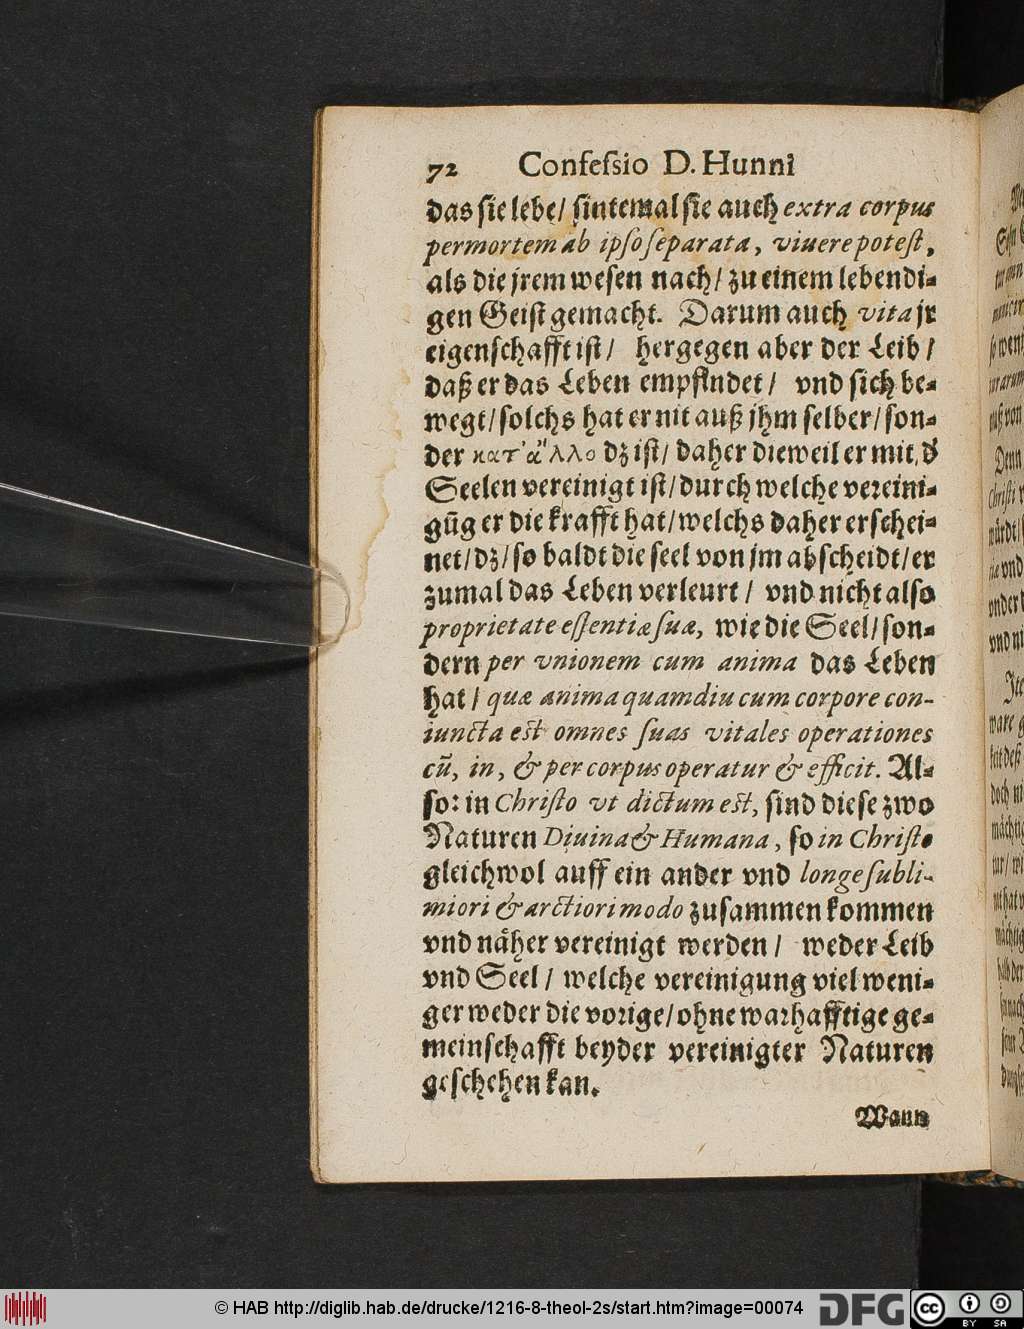 72 Confeſsio D. Hunni
das ſie lebe/ ſintemal ſie auch extra corpus
per mortem ab ipſo ſeparata, viuere poteſt,
als die jrem weſen nach/ zu einem lebendi-
gen Geiſt gemacht. Darum auch vita jr
eigenſchafft iſt/ hergegen aber der Leib/
daß er das Leben empfindet/ vnd ſich be-
wegt/ ſolchs hat er nit auß jhm ſelber/ ſon-
der κατ' ἄλλο dz iſt/ daher dieweil er mit d'
Seelen vereinigt iſt/ durch welche vereini-
gūg er die krafft hat/ welchs daher erſchei-
net/ dz/ ſo baldt die ſeel von jm abſcheidt/ er
zumal das Leben verleurt/ vnd nicht alſo
proprietate eſſentiæ ſuæ, wie die Seel/ ſon-
dern per vnionem cum anima das Leben
hat/ quæ anima quamdiu cum corpore con-
iuncta est omnes ſuas vitales operationes
cū, in, & per corpus operatur & efficit. Al-
ſo: in Chriſto vt dictum est, ſind dieſe zwo
Naturen Diuina & Humana, ſo in Chriſto
gleichwol auff ein ander vnd longe ſubli-
miori & arctiori modo zuſammen kommen
vnd näher vereinigt werden/ weder Leib
vnd Seel/ welche vereinigung viel weni-
ger weder die vorige/ ohne warhafftige ge-
meinſchafft beyder vereinigter Naturen
geſchehen kan.
Wann
© HAB http://diglib.hab.de/drucke/1216-8-theol-2s/start.htm?image=00074 DFG cc BY SA